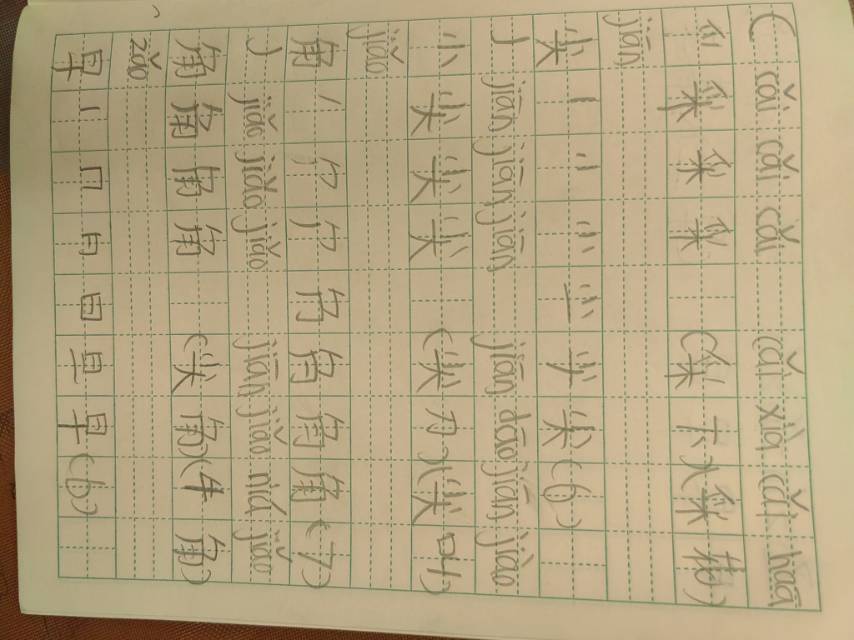 cǎi cǎi cǎi cǎi xià cǎi huā
采 采 采 (采下)(采花)
jiān
尖 亅 小 尖 (6)
jiān jiān jiān jiān dāo jiān jiào
小 尖 尖 尖 (尖刀)(尖叫)
jiǎo
角 角 (7)
jiǎo jiǎo jiǎo jiān jiǎo niú jiǎo
角 角 角 角 (尖角)(牛角)
zǎo
早 丨 冂 日 日 旦 早 (6)